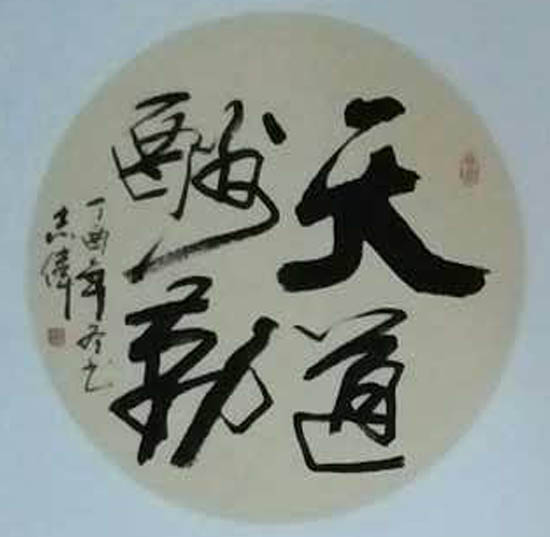 天道
酬勤
丁酉年冬书
志偉